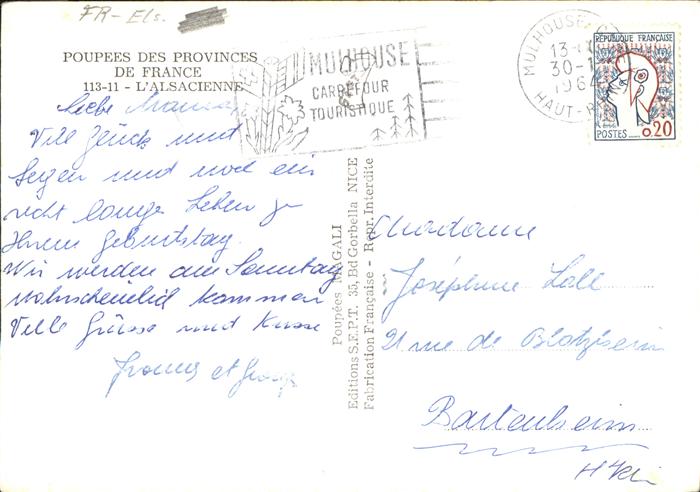 FR-Els.
POUPEES DES PROVINCES
DE FRANCE
113-11 - L'ALSACIENNE
MULHOUSE
CARREFOUR
TOURISTIQUE
MULHOUSE
13-
30-1
1964
HAUT-RHIN
RÉPUBLIQUE FRANÇAISE
POSTES 0,20
Liebe Maman
Vill Glück und
Segen und noch ein
recht langes Leben zu
Ihrem Geburtstag.
Wir werden am Sonntag
wahrscheinlich kommen
Ville Grüsse und Küsse
et
Poupées MAGALI
Editions S.E.P.T. 35, Bd Gorbella NICE
Fabrication Française - Repr. Interdite
Madame
Joséphine
21 rue de Blotzheim
Bartenheim